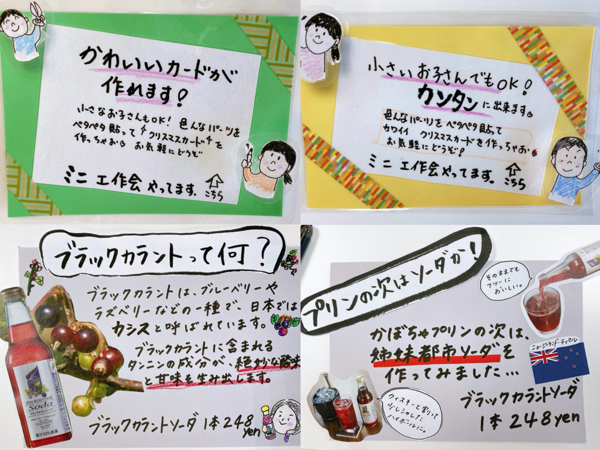 かわいいカードが
作れます!
小さなお子さんもOK! 色んなパーツを
ペタペタ貼って クリスマスカードを
作っちゃお お気軽にどうぞ
ミニ工作会やってます。
こちら
小さいお子さんでもOK!
カンタンに出来ます。
色んなパーツを ペタペタ貼って
カワイイ クリスマスカードを作っちゃお。
お気軽にどうぞ!
ミニ工作会やってます。
こちら
ブラックカラントって何?
ブラックカラントは、ブルーベリーや
ラズベリーなどの一種で、日本では
カシスと呼ばれています。
ブラックカラントに含まれる
タンニンの成分が、絶妙な酸味
と甘味を生み出します。
Soda
ブラックカラントソーダ 1本248
yen
プリンの次はソーダか!
そのままでも
フツーに
おいしい。
かぼちゃプリンの次は、
姉妹都市ソーダを
作ってみました...
ウィスキーと割って
少しシャレた
ハイボールに。
ブラックカラントソーダ
1本248yen